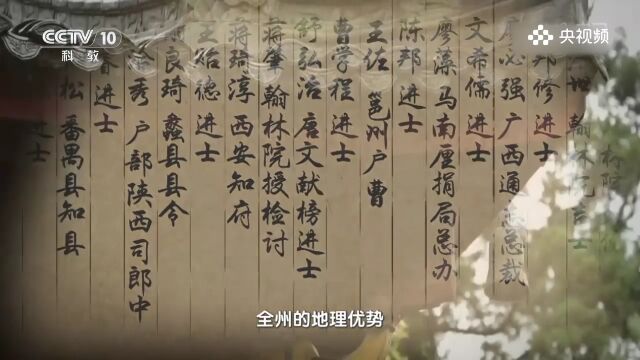 CCTV 10
科教
央视频
翰林院
邦修进士
必强广西通志总裁
文希儒进士
廖藻马南厘捐局总办
陈邦进士
王佐邕州户曹
曹学程进士
舒弘治唐文献榜进士
蒋肇翰林院授检讨
蒋琦淳西安知府
王贻德进士
良琦蠡县县令
秀户部陕西司郎中
进士
松番禺县知县
进士
全州的地理优势